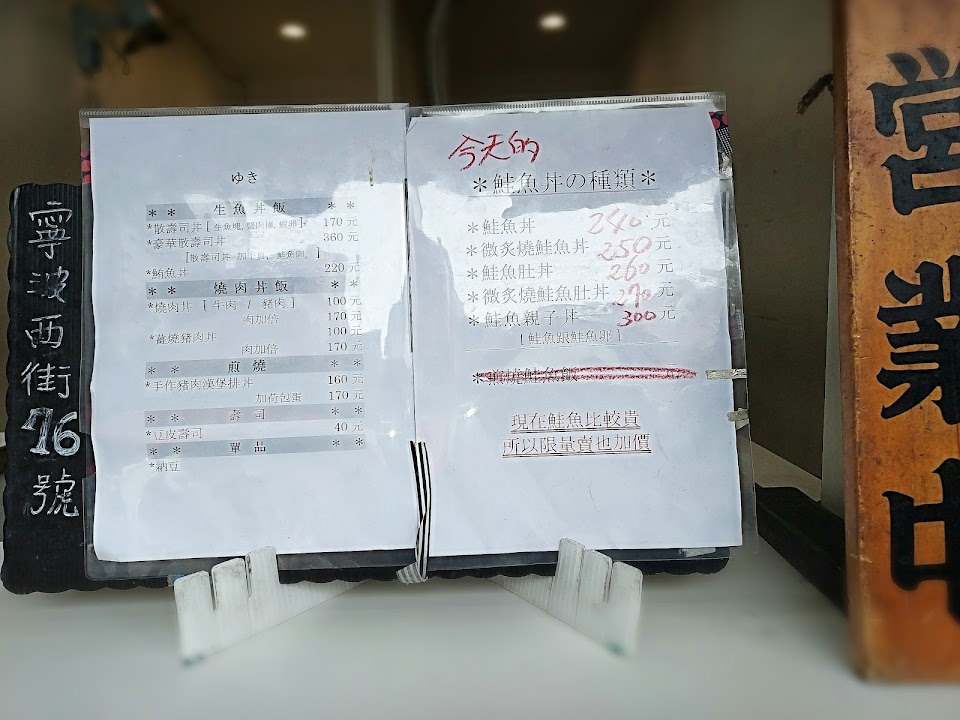 寧波西街76號
ゆき
* * 生魚丼飯 * *
*散壽司丼 [生魚塊, 蟹肉棒, 蝦卵] 170 元
*豪華散壽司丼 360 元
[散壽司丼 加干貝、鮭魚卵, ]
*鮪魚丼 220 元
* * 燒肉丼飯 * *
*燒肉丼 [ 牛肉 / 豬肉 ] 100 元
肉加倍 170 元
*薑燒豬肉丼 100 元
肉加倍 170 元
* * 煎燒 * *
*手作豬肉漢堡排丼 160 元
加荷包蛋 170 元
* * 壽司 * *
*豆皮壽司 40 元
* * 單品 * *
*納豆
今天的
*鮭魚丼の種類*
*鮭魚丼 240 元
*微炙燒鮭魚丼 250 元
*鮭魚肚丼 260 元
*微炙燒鮭魚肚丼 270 元
*鮭魚親子丼 300 元
[鮭魚跟鮭魚卵]
現在鮭魚比較貴
所以限量賣也加價
営業中